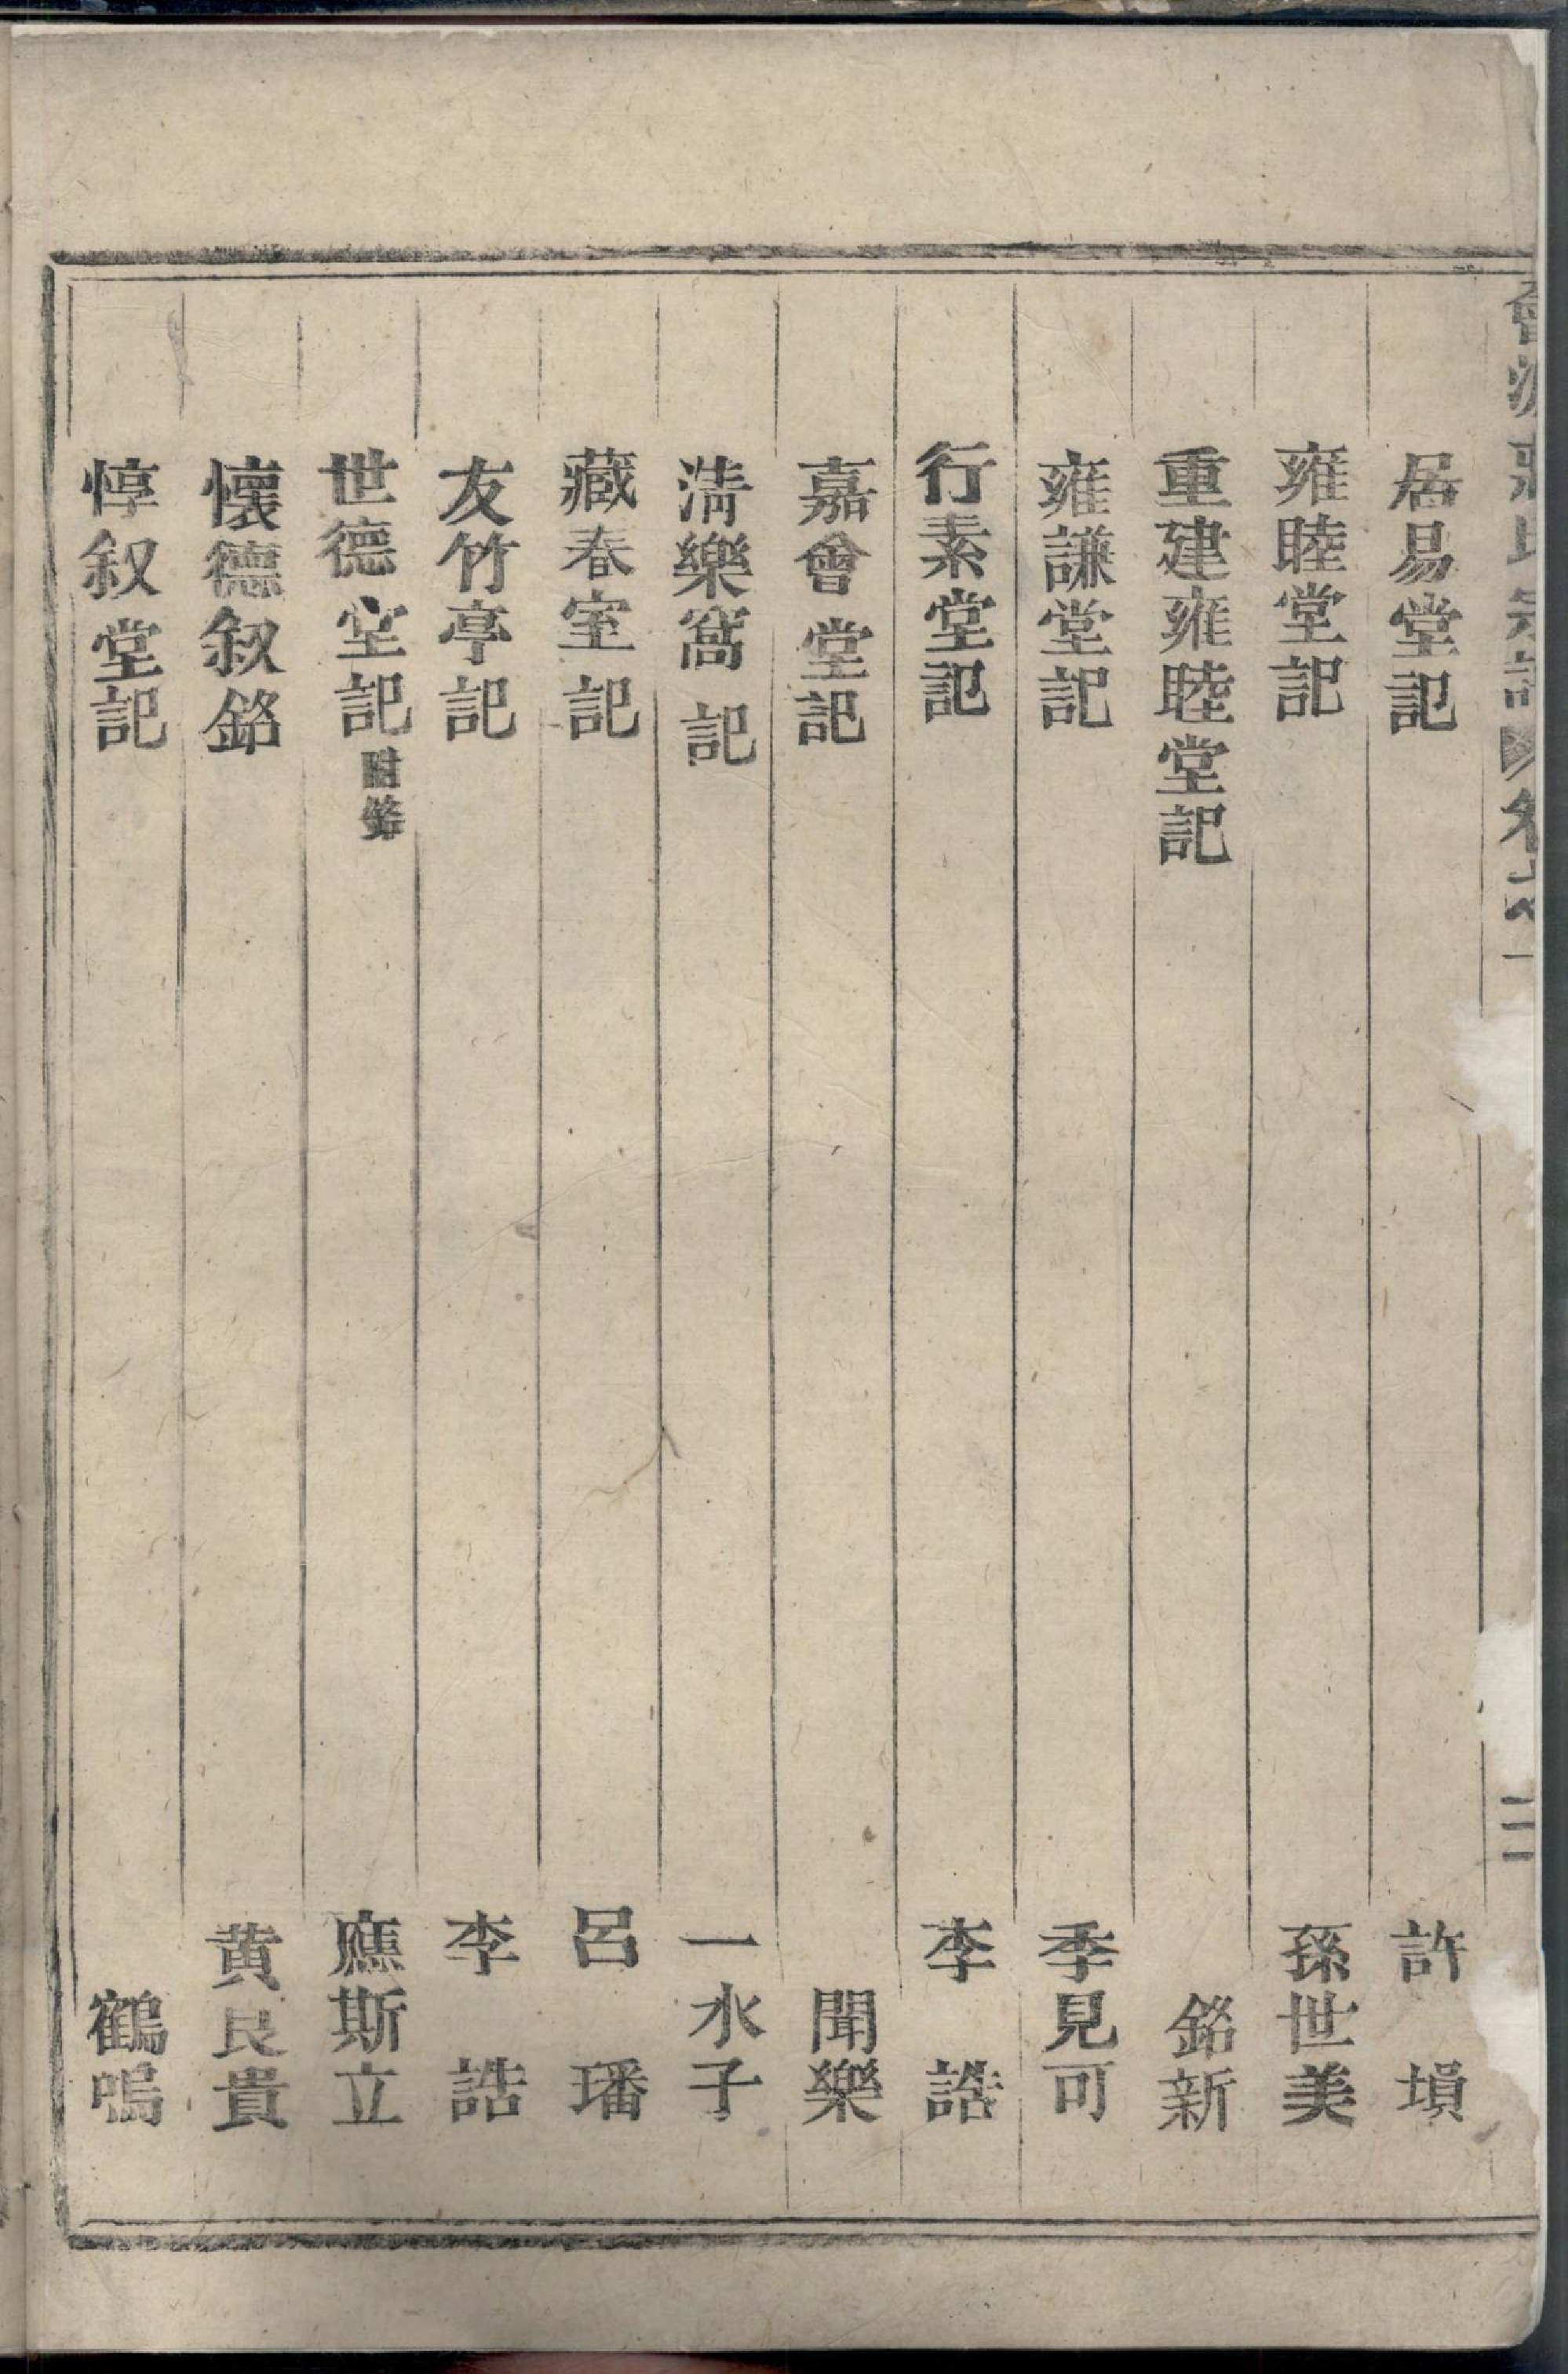 居易堂記 許塤
雍睦堂記 孫世美
重建雍睦堂記 銘新
雍謙堂記 季見可
行素堂記 李誥
嘉會堂記 聞樂
清樂窩記 一水子
藏春室記 呂璠
友竹亭記 李誥
世德堂記 附銘 應斯立
懷德叙銘 黄良貴
惇叙堂記 鶴鳴
二